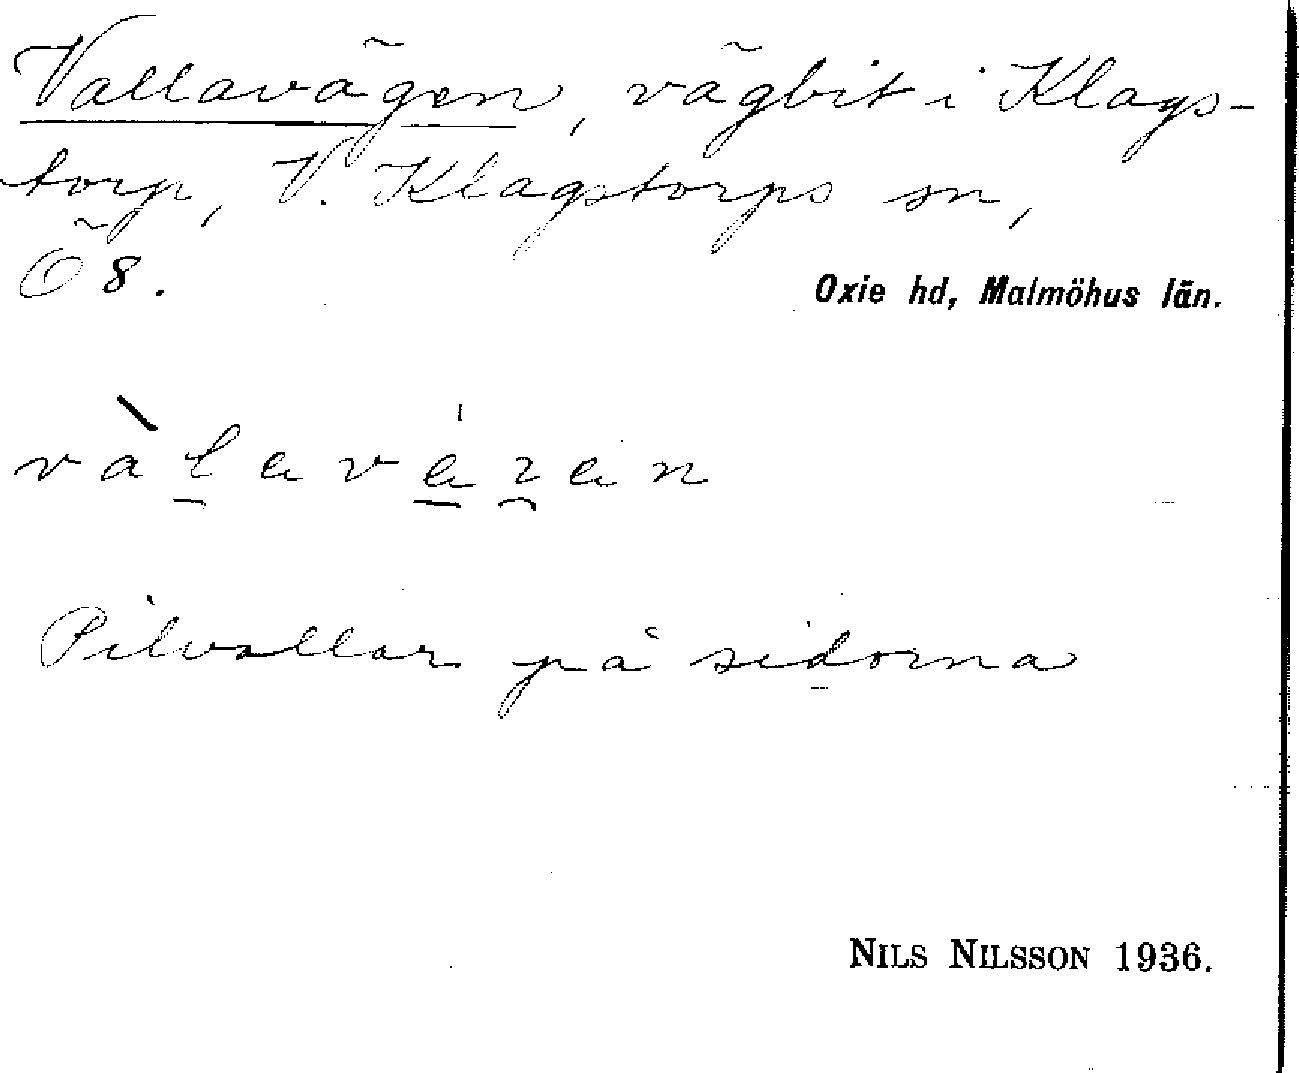 Vallavägen, vägbit i Klags-
torp, V. Klagstorps sn,
Ö 8.
Oxie hd, Malmöhus län.
Pilvallar på sidorna
NILS NILSSON 1936.